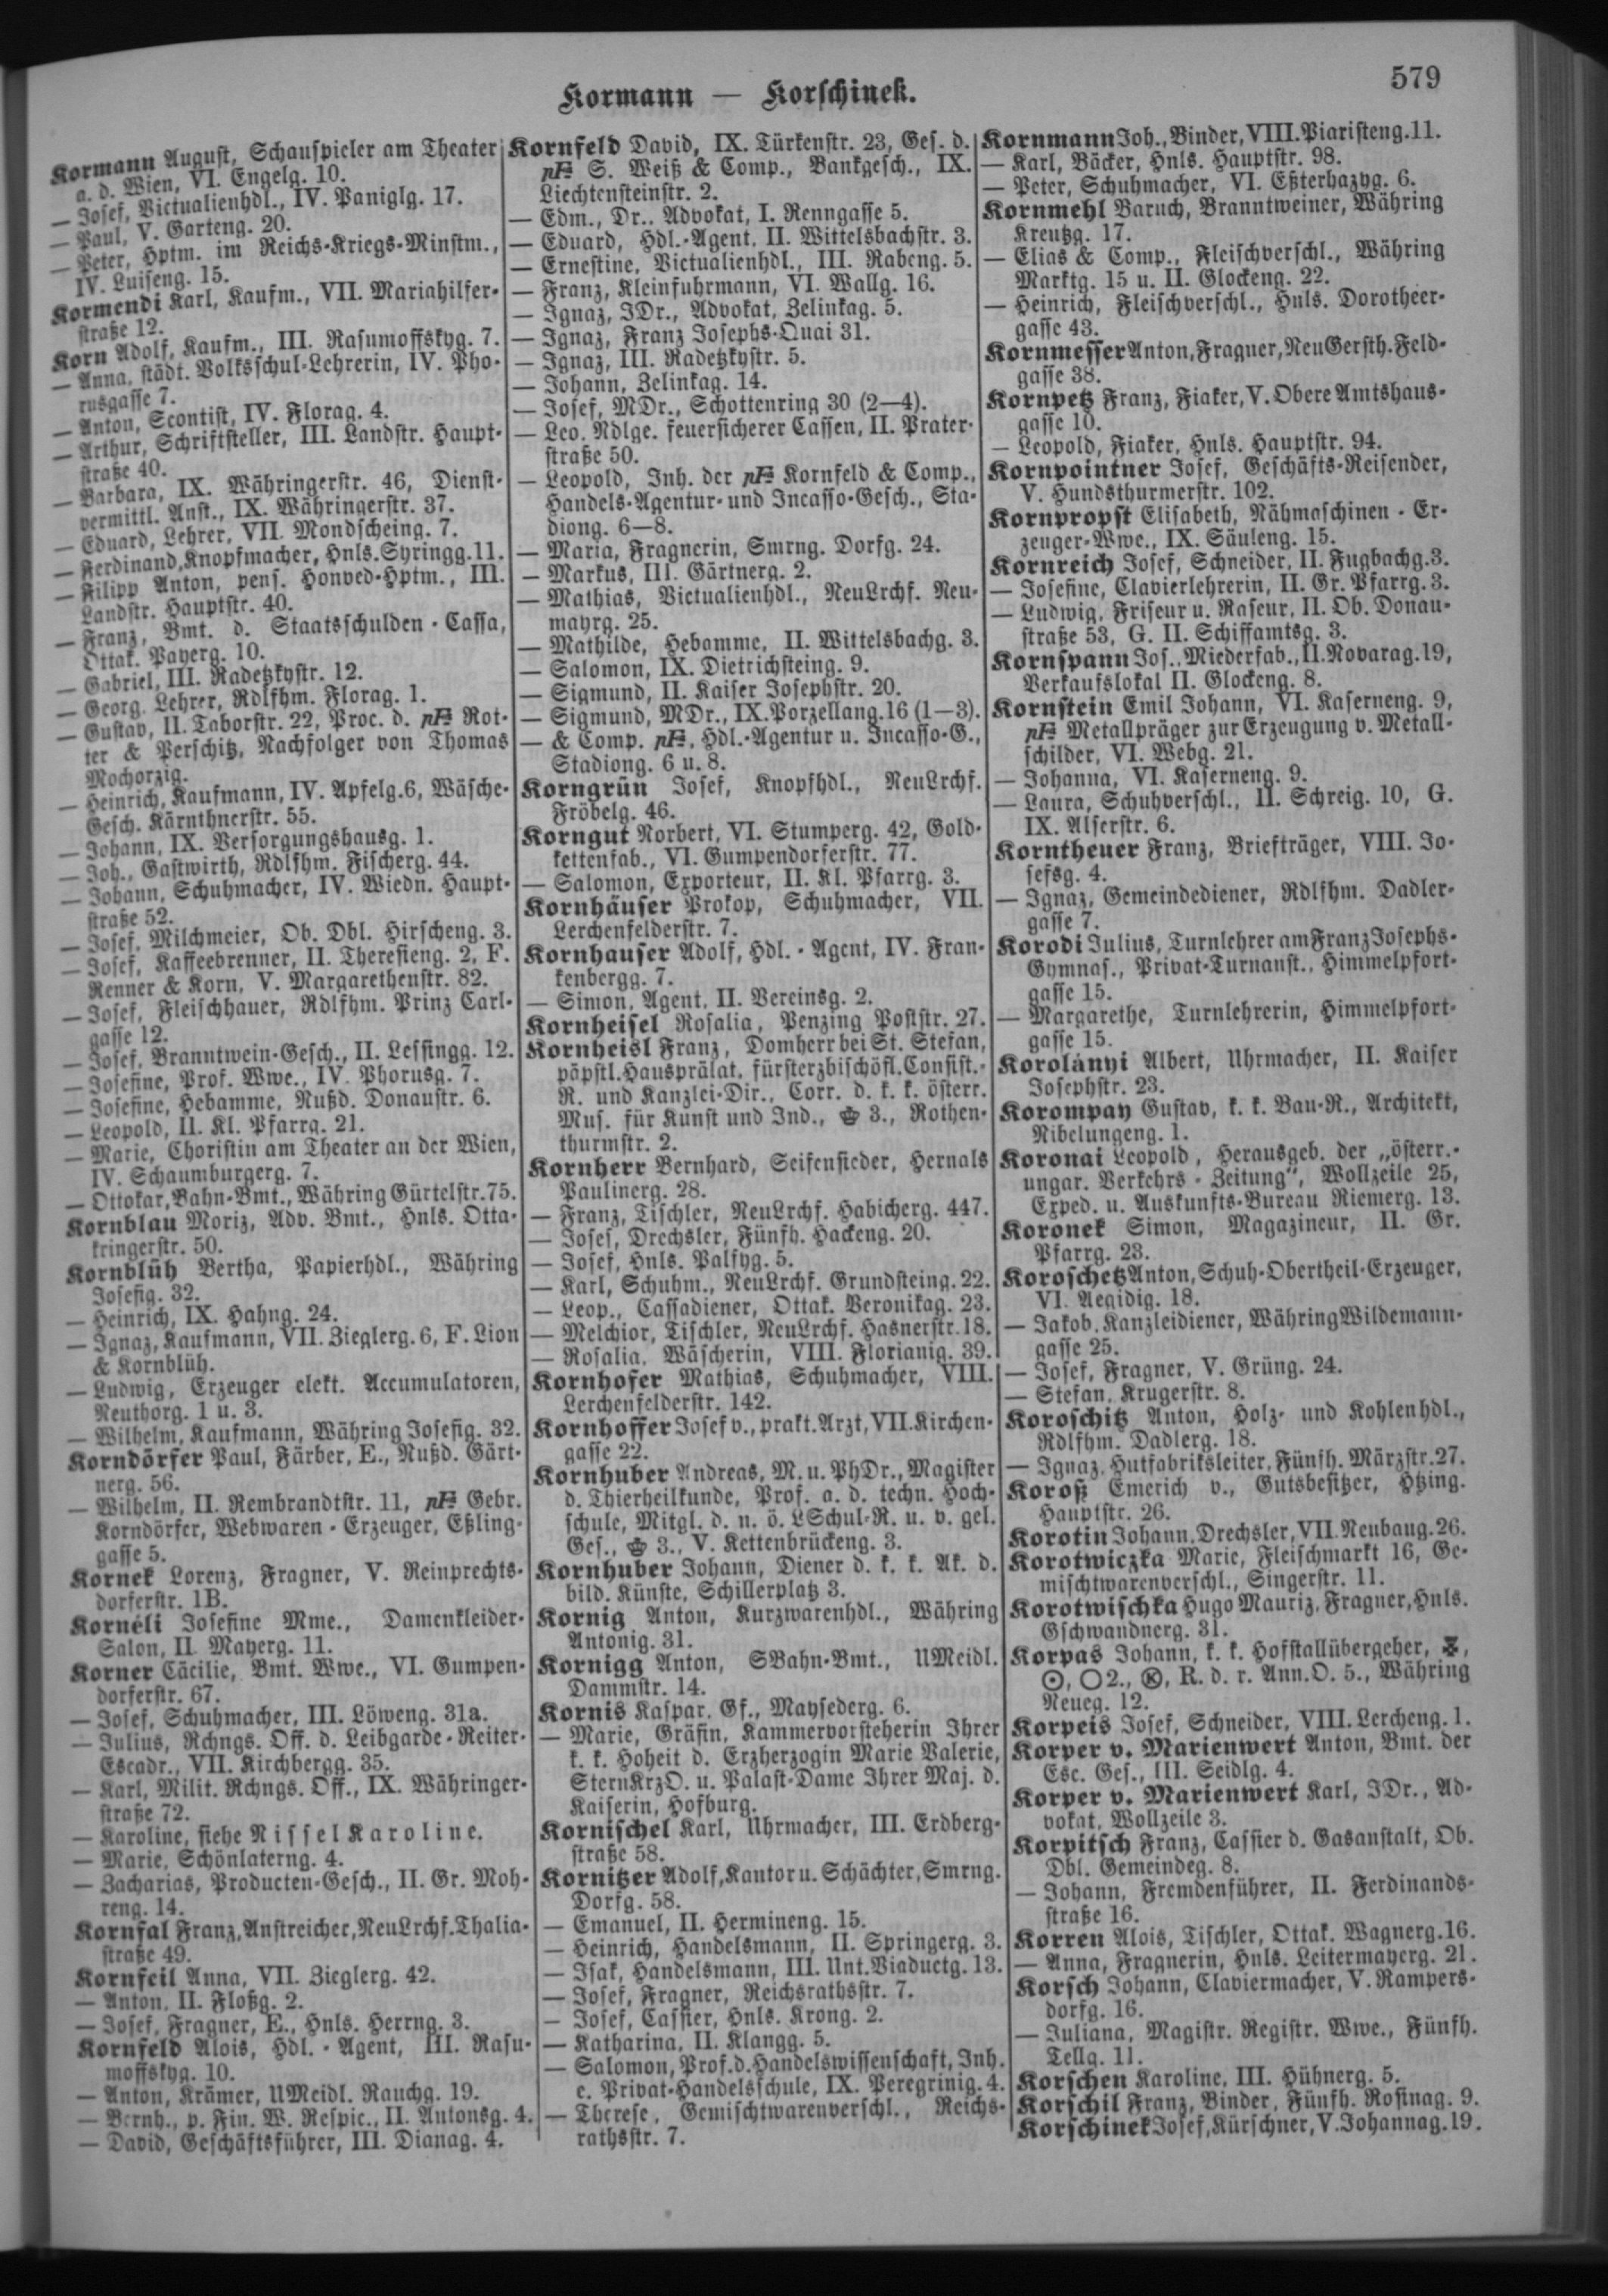 Kormann — Korschinek.
579
Kormann August, Schauspieler am Theater
a. d. Wien, VI. Engelg. 10.
— Josef, Victualienhdl., IV. Paniglg. 17.
— Paul, V. Garteng. 20.
— Peter, Hptm. im Reichs-Kriegs-Minstm.,
IV. Luiseng. 15.
Kormendi Karl, Kaufm., VII. Mariahilfer-
straße 12.
Korn Adolf, Kaufm., III. Rasumoffskyg. 7.
— Anna, städt. Volksschul-Lehrerin, IV. Pho-
rusgasse 7.
— Anton, Scontist, IV. Florag. 4.
— Arthur, Schriftsteller, III. Landstr. Haupt-
straße 40.
— Barbara, IX. Währingerstr. 46, Dienst-
vermittl. Anst., IX. Währingerstr. 37.
— Eduard, Lehrer, VII. Mondscheing. 7.
— Ferdinand, Knopfmacher, Hnls. Syringg. 11.
— Filipp Anton, pens. Honved-Hptm., III.
Landstr. Hauptstr. 40.
— Franz, Bmt. d. Staatsschulden-Cassa,
Ottak. Payerg. 10.
— Gabriel, III. Radetzkystr. 12.
— Georg, Lehrer, Rdlfhm. Florag. 1.
— Gustav, II. Taborstr. 22, Proc. d. pF Rot-
ter & Perschitz, Nachfolger von Thomas
Mochorzig.
— Heinrich, Kaufmann, IV. Apfelg. 6, Wäsche-
Gesch. Kärnthnerstr. 55.
— Johann, IX. Versorgungshausg. 1.
— Joh., Gastwirth, Rdlfhm. Fischerg. 44.
— Johann, Schuhmacher, IV. Wiedn. Haupt-
straße 52.
— Josef, Milchmeier, Ob. Dbl. Hirscheng. 3.
— Josef, Kaffeebrenner, II. Theresieng. 2, F.
Renner & Korn, V. Margarethenstr. 82.
— Josef, Fleischhauer, Rdlfhm. Prinz Carl-
gasse 12.
— Josef, Branntwein-Gesch., II. Lessingg. 12.
— Josefine, Prof. Wwe., IV. Phorusg. 7.
— Josefine, Hebamme, Nußd. Donaustr. 6.
— Leopold, II. Kl. Pfarrg. 21.
— Marie, Choristin am Theater an der Wien,
IV. Schaumburgerg. 7.
— Ottokar, Bahn-Bmt., Währing Gürtelstr. 75.
Kornblau Moriz, Adv. Bmt., Hnls. Otta-
kringerstr. 50.
Kornblüh Bertha, Papierhdl., Währing
Josefig. 32.
— Heinrich, IX. Hahng. 24.
— Ignaz, Kaufmann, VII. Zieglerg. 6, F. Lion
& Kornblüh.
— Ludwig, Erzeuger elekt. Accumulatoren,
Neuthorg. 1 u. 3.
— Wilhelm, Kaufmann, Währing Josefig. 32.
Korndörfer Paul, Färber, E., Nußd. Gärt-
nerg. 56.
— Wilhelm, II. Rembrandtstr. 11, pF Gebr.
Korndörfer, Webwaren-Erzeuger, Eßling-
gasse 5.
Kornek Lorenz, Fragner, V. Reinprechts-
dorferstr. 1B.
Kornéli Josefine Mme., Damenkleider-
Salon, II. Mayerg. 11.
Korner Cäcilie, Bmt. Wwe., VI. Gumpen-
dorferstr. 67.
— Josef, Schuhmacher, III. Löweng. 31a.
— Julius, Rchngs. Off. d. Leibgarde-Reiter-
Escadr., VII. Kirchbergg. 35.
— Karl, Milit. Rchngs. Off., IX. Währinger-
straße 72.
— Karoline, siehe Nissel Karoline.
— Marie, Schönlaterng. 4.
— Zacharias, Producten-Gesch., II. Gr. Moh-
reng. 14.
Kornfal Franz, Anstreicher, NeuLrchf. Thalia-
straße 49.
Kornfeil Anna, VII. Zieglerg. 42.
— Anton, II. Floßg. 2.
— Josef, Fragner, E., Hnls. Herrng. 3.
Kornfeld Alois, Hdl.-Agent, III. Rasu-
moffskyg. 10.
— Anton, Krämer, UMeidl. Rauchg. 19.
— Bernh., p. Fin. W. Respic., II. Antonsg. 4.
— David, Geschäftsführer, III. Dianag. 4.
Kornfeld David, IX. Türkenstr. 23, Ges. d.
pF S. Weiß & Comp., Bankgesch., IX.
Liechtensteinstr. 2.
— Edm., Dr., Advokat, I. Renngasse 5.
— Eduard, Hdl.-Agent, II. Wittelsbachstr. 3.
— Ernestine, Victualienhdl., III. Rabeng. 5.
— Franz, Kleinfuhrmann, VI. Wallg. 16.
— Ignaz, JDr., Advokat, Zelinkag. 5.
— Ignaz, Franz Josephs-Quai 31.
— Ignaz, III. Radetzkystr. 5.
— Johann, Zelinkag. 14.
— Josef, MDr., Schottenring 30 (2—4).
— Leo, Ndlge. feuersicherer Cassen, II. Prater-
straße 50.
— Leopold, Inh. der pF Kornfeld & Comp.,
Handels-Agentur- und Incasso-Gesch., Sta-
diong. 6—8.
— Maria, Fragnerin, Smrng. Dorfg. 24.
— Markus, III. Gärtnerg. 2.
— Mathias, Victualienhdl., NeuLrchf. Neu-
mayrg. 25.
— Mathilde, Hebamme, II. Wittelsbachg. 3.
— Salomon, IX. Dietrichsteing. 9.
— Sigmund, II. Kaiser Josephstr. 20.
— Sigmund, MDr., IX. Porzellang. 16 (1—3).
— & Comp. pF, Hdl.-Agentur u. Incasso-G.,
Stadiong. 6 u. 8.
Korngrün Josef, Knopfhdl., NeuLrchf.
Fröbelg. 46.
Korngut Norbert, VI. Stumperg. 42, Gold-
kettenfab., VI. Gumpendorferstr. 77.
— Salomon, Exporteur, II. Kl. Pfarrg. 3.
Kornhäuser Prokop, Schuhmacher, VII.
Lerchenfelderstr. 7.
Kornhauser Adolf, Hdl.-Agent, IV. Fran-
kenbergg. 7.
— Simon, Agent, II. Vereinsg. 2.
Kornheisel Rosalia, Penzing Poststr. 27.
Kornheisl Franz, Domherr bei St. Stefan,
päpstl. Hausprälat, fürsterzbischöfl. Consist.-
R. und Kanzlei-Dir., Corr. d. k. k. österr.
Mus. für Kunst und Ind., ♚ 3., Rothen-
thurmstr. 2.
Kornherr Bernhard, Seifensieder, Hernals
Paulinerg. 28.
— Franz, Tischler, NeuLrchf. Habicherg. 447.
— Josef, Drechsler, Fünfh. Hackeng. 20.
— Josef, Hnls. Palfyg. 5.
— Karl, Schuhm., NeuLrchf. Grundsteing. 22.
— Leop., Cassadiener, Ottak. Veronikag. 23.
— Melchior, Tischler, NeuLrchf. Hasnerstr. 18.
— Rosalia, Wäscherin, VIII. Florianig. 39.
Kornhofer Mathias, Schuhmacher, VIII.
Lerchenfelderstr. 142.
Kornhoffer Josef v., prakt. Arzt, VII. Kirchen-
gasse 22.
Kornhuber Andreas, M. u. PhDr., Magister
d. Thierheilkunde, Prof. a. d. techn. Hoch-
schule, Mitgl. d. n. ö. LSchul-R. u. v. gel.
Ges., ♚ 3., V. Kettenbrückeng. 3.
Kornhuber Johann, Diener d. k. k. Ak. d.
bild. Künste, Schillerplatz 3.
Kornig Anton, Kurzwarenhdl., Währing
Antonig. 31.
Kornigg Anton, SBahn-Bmt., UMeidl.
Dammstr. 14.
Kornis Kaspar, Gf., Maysederg. 6.
— Marie, Gräfin, Kammervorsteherin Ihrer
k. k. Hoheit d. Erzherzogin Marie Valerie,
SternKrzO. u. Palast-Dame Ihrer Maj. d.
Kaiserin, Hofburg.
Kornischel Karl, Uhrmacher, III. Erdberg-
straße 58.
Kornitzer Adolf, Kantor u. Schächter, Smrng.
Dorfg. 58.
— Emanuel, II. Hermineng. 15.
— Heinrich, Handelsmann, II. Springerg. 3.
— Isak, Handelsmann, III. Unt. Viaductg. 13.
— Josef, Fragner, Reichsrathsstr. 7.
— Josef, Cassier, Hnls. Krong. 2.
— Katharina, II. Klangg. 5.
— Salomon, Prof. d. Handelswissenschaft, Inh.
e. Privat-Handelsschule, IX. Peregrinig. 4.
— Therese, Gemischtwarenverschl., Reichs-
rathsstr. 7.
Kornmann Joh., Binder, VIII. Piaristeng. 11.
— Karl, Bäcker, Hnls. Hauptstr. 98.
— Peter, Schuhmacher, VI. Eßterhazyg. 6.
Kornmehl Baruch, Branntweiner, Währing
Kreutzg. 17.
— Elias & Comp., Fleischverschl., Währing
Marktg. 15 u. II. Glockeng. 22.
— Heinrich, Fleischverschl., Hnls. Dorotheer-
gasse 43.
Kornmesser Anton, Fragner, NeuGersth. Feld-
gasse 38.
Kornpetz Franz, Fiaker, V. Obere Amtshaus-
gasse 10.
— Leopold, Fiaker, Hnls. Hauptstr. 94.
Kornpointner Josef, Geschäfts-Reisender,
V. Hundsthurmerstr. 102.
Kornpropst Elisabeth, Nähmaschinen-Er-
zeuger-Wwe., IX. Säuleng. 15.
Kornreich Josef, Schneider, II. Fugbachg. 3.
— Josefine, Clavierlehrerin, II. Gr. Pfarrg. 3.
— Ludwig, Friseur u. Raseur, II. Ob. Donau-
straße 53, G. II. Schiffamtsg. 3.
Kornspann Jos., Miederfab., II. Novarag. 19,
Verkaufslokal II. Glockeng. 8.
Kornstein Emil Johann, VI. Kaserneng. 9,
pF Metallpräger zur Erzeugung v. Metall-
schilder, VI. Webg. 21.
— Johanna, VI. Kaserneng. 9.
— Laura, Schuhverschl., II. Schreig. 10, G.
IX. Alserstr. 6.
Korntheuer Franz, Briefträger, VIII. Jo-
sefsg. 4.
— Ignaz, Gemeindediener, Rdlfhm. Dadler-
gasse 7.
Korodi Julius, Turnlehrer am Franz Josephs-
Gymnas., Privat-Turnanst., Himmelpfort-
gasse 15.
— Margarethe, Turnlehrerin, Himmelpfort-
gasse 15.
Korolányi Albert, Uhrmacher, II. Kaiser
Josephstr. 23.
Korompay Gustav, k. k. Bau-R., Architekt,
Nibelungeng. 1.
Koronai Leopold, Herausgeb. der „österr.-
ungar. Verkehrs-Zeitung“, Wollzeile 25,
Exped. u. Auskunfts-Bureau Riemerg. 13.
Koronek Simon, Magazineur, II. Gr.
Pfarrg. 23.
Koroschetz Anton, Schuh-Obertheil-Erzeuger,
VI. Aegidig. 18.
— Jakob, Kanzleidiener, Währing Wildemann-
gasse 25.
— Josef, Fragner, V. Grüng. 24.
— Stefan, Krugerstr. 8.
Koroschitz Anton, Holz- und Kohlenhdl.,
Rdlfhm. Dadlerg. 18.
— Ignaz, Hutfabriksleiter, Fünfh. Märzstr. 27.
Koroß Emerich v., Gutsbesitzer, Htzing.
Hauptstr. 26.
Korotin Johann, Drechsler, VII. Neubaug. 26.
Korotwiczka Marie, Fleischmarkt 16, Ge-
mischtwarenverschl., Singerstr. 11.
Korotwischka Hugo Mauriz, Fragner, Hnls.
Gschwandnerg. 31.
Korpas Johann, k. k. Hofstallübergeher,
⊙, ○ 2., Ⓚ, R. d. r. Ann.O. 5., Währing
Neueg. 12.
Korpeis Josef, Schneider, VIII. Lercheng. 1.
Korper v. Marienwert Anton, Bmt. der
Esc. Ges., III. Seidlg. 4.
Korper v. Marienwert Karl, JDr., Ad-
vokat, Wollzeile 3.
Korpitsch Franz, Cassier d. Gasanstalt, Ob.
Dbl. Gemeindeg. 8.
— Johann, Fremdenführer, II. Ferdinands-
straße 16.
Korren Alois, Tischler, Ottak. Wagnerg. 16.
— Anna, Fragnerin, Hnls. Leitermayerg. 21.
Korsch Johann, Claviermacher, V. Rampers-
dorfg. 16.
— Juliana, Magistr. Registr. Wwe., Fünfh.
Tellg. 11.
Korschen Karoline, III. Hühnerg. 5.
Korschil Franz, Binder, Fünfh. Rosinag. 9.
Korschinek Josef, Kürschner, V. Johannag. 19.